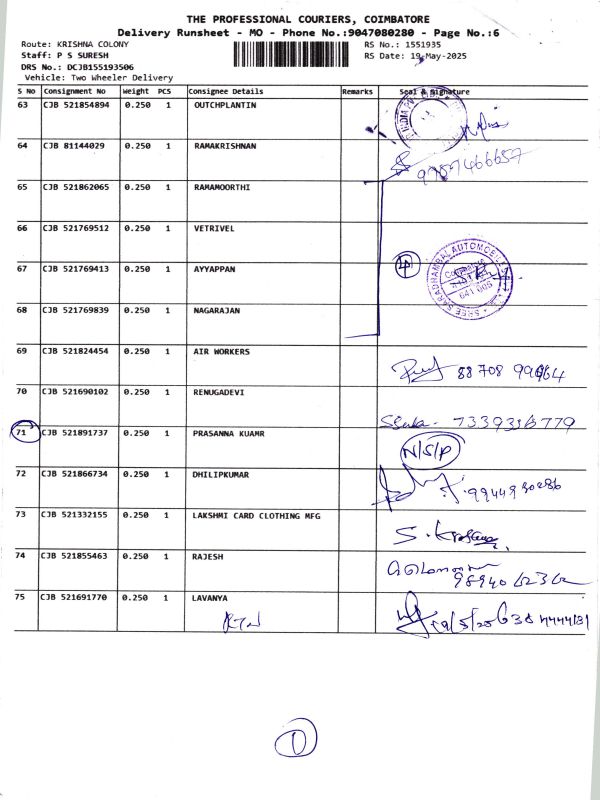 THE PROFESSIONAL COURIERS, COIMBATORE
Delivery Runsheet - MO - Phone No.:9047080280 - Page No.:6
Route: KRISHNA COLONY RS No.: 1551935
Staff: P S SURESH RS Date: 19-May-2025
DRS No.: DCJB155193506
Vehicle: Two Wheeler Delivery
S No Consignment No Weight PCS Consignee Details Remarks Seal & Signature
63 CJB 521854894 0.250 1 OUTCHPLANTIN
64 CJB 81144029 0.250 1 RAMAKRISHNAN
9787466657
65 CJB 521862065 0.250 1 RAMAMOORTHI
66 CJB 521769512 0.250 1 VETRIVEL
67 CJB 521769413 0.250 1 AYYAPPAN
SHREE SARADHAMBAL AUTOMOBILES
641 005
68 CJB 521769839 0.250 1 NAGARAJAN
69 CJB 521824454 0.250 1 AIR WORKERS
88708
70 CJB 521690102 0.250 1 RENUGADEVI
71 CJB 521891737 0.250 1 PRASANNA KUAMR
N/S/P
72 CJB 521866734 0.250 1 DHILIPKUMAR
9944930286
73 CJB 521332155 0.250 1 LAKSHMI CARD CLOTHING MFG
74 CJB 521855463 0.250 1 RAJESH
75 CJB 521691770 0.250 1 LAVANYA
1